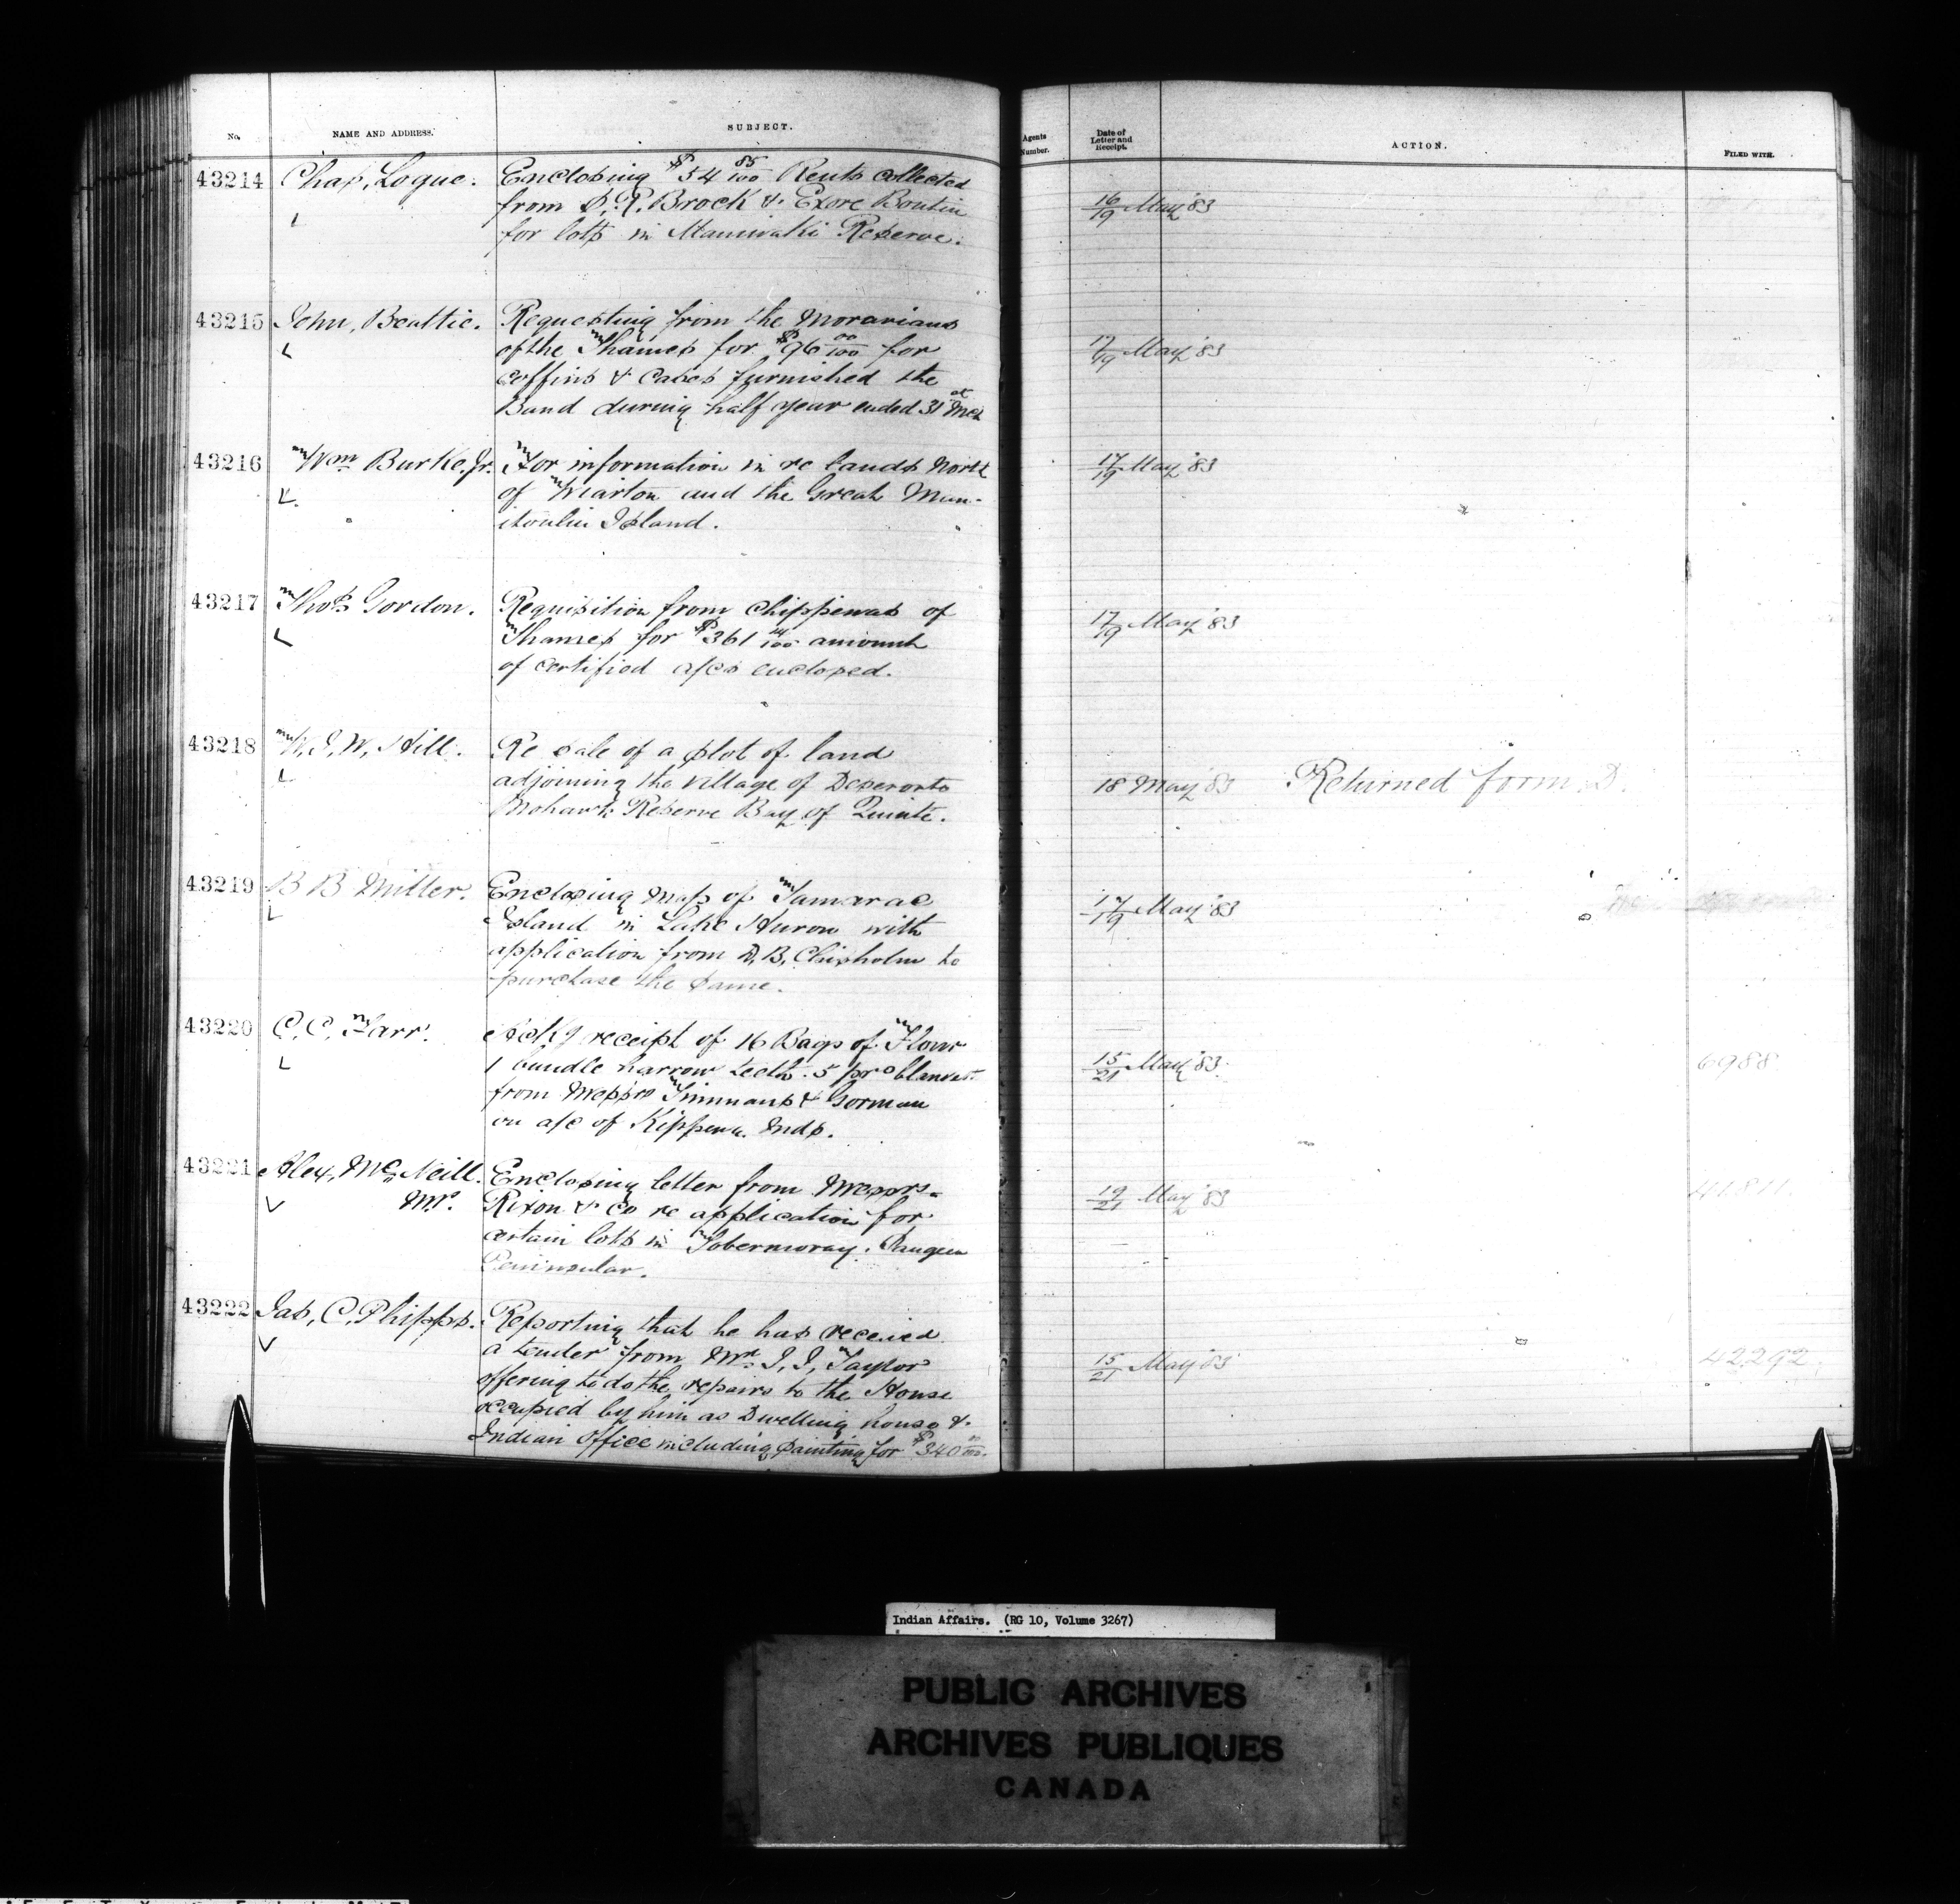 No.
NAME AND ADDRESS.
SUBJECT.
Agents Number.
Date of Letter and Receipt.
ACTION.
FILED WITH.
43214 Chas, Logue. Enclosing $54 85/100 Rents collected
from S. R. Brock & Exore Boutin
for lots in Maniwaki Reserve.
16/19 May '83
43215 John, Beattie. Requesting from the Moravians
of the Thames for $96 00/100 for
coffins & cases furnished the
Band during half year ended 31st Mch
17/19 May '83
43216 Wm Burke, Jr. For information in re lands North
of Wiarton and the Great Man-
itoulin Island.
17/19 May '83
43217 Thos Gordon. Requisition from Chippewas of
Thames for $361 amount
of certified a/cs enclosed.
17/19 May '83
43218 W. I, W, Hill. Re sale of a plot of land
adjoining the village of Deseronto
Mohawk Reserve Bay of Quinte.
18 May '83 Returned form D.
43219 B B Miller. Enclosing Map of Tamarac
Island in Lake Huron with
application from D, B, Chisholm to
purchase the same.
17/19 May '83
43220 C. C. Farr. Ackg receipt of 16 Bags of Flour
1 bundle harrow teeth. 5 prs blankets
from Messrs Timmans & Gorman
on a/c of Kippewa Inds.
15/21 May '83 6988
43221 Alex, McNeill. Enclosing letter from Messrs.
MP. Rixon & Co re application for
certain lots in Tobermoray. Saugeen
Peninsular.
19/21 May '83 41811
43222 Jas, C, Phipps. Reporting that he has received
a tender from Mr. J, J, Taylor
offering to do the repairs to the House
occupied by him as Dwelling house &
Indian Office including painting for $340 00/100.
15/21 May '83 42292
Indian Affairs. (RG 10, Volume 3267)
PUBLIC ARCHIVES
ARCHIVES PUBLIQUES
CANADA